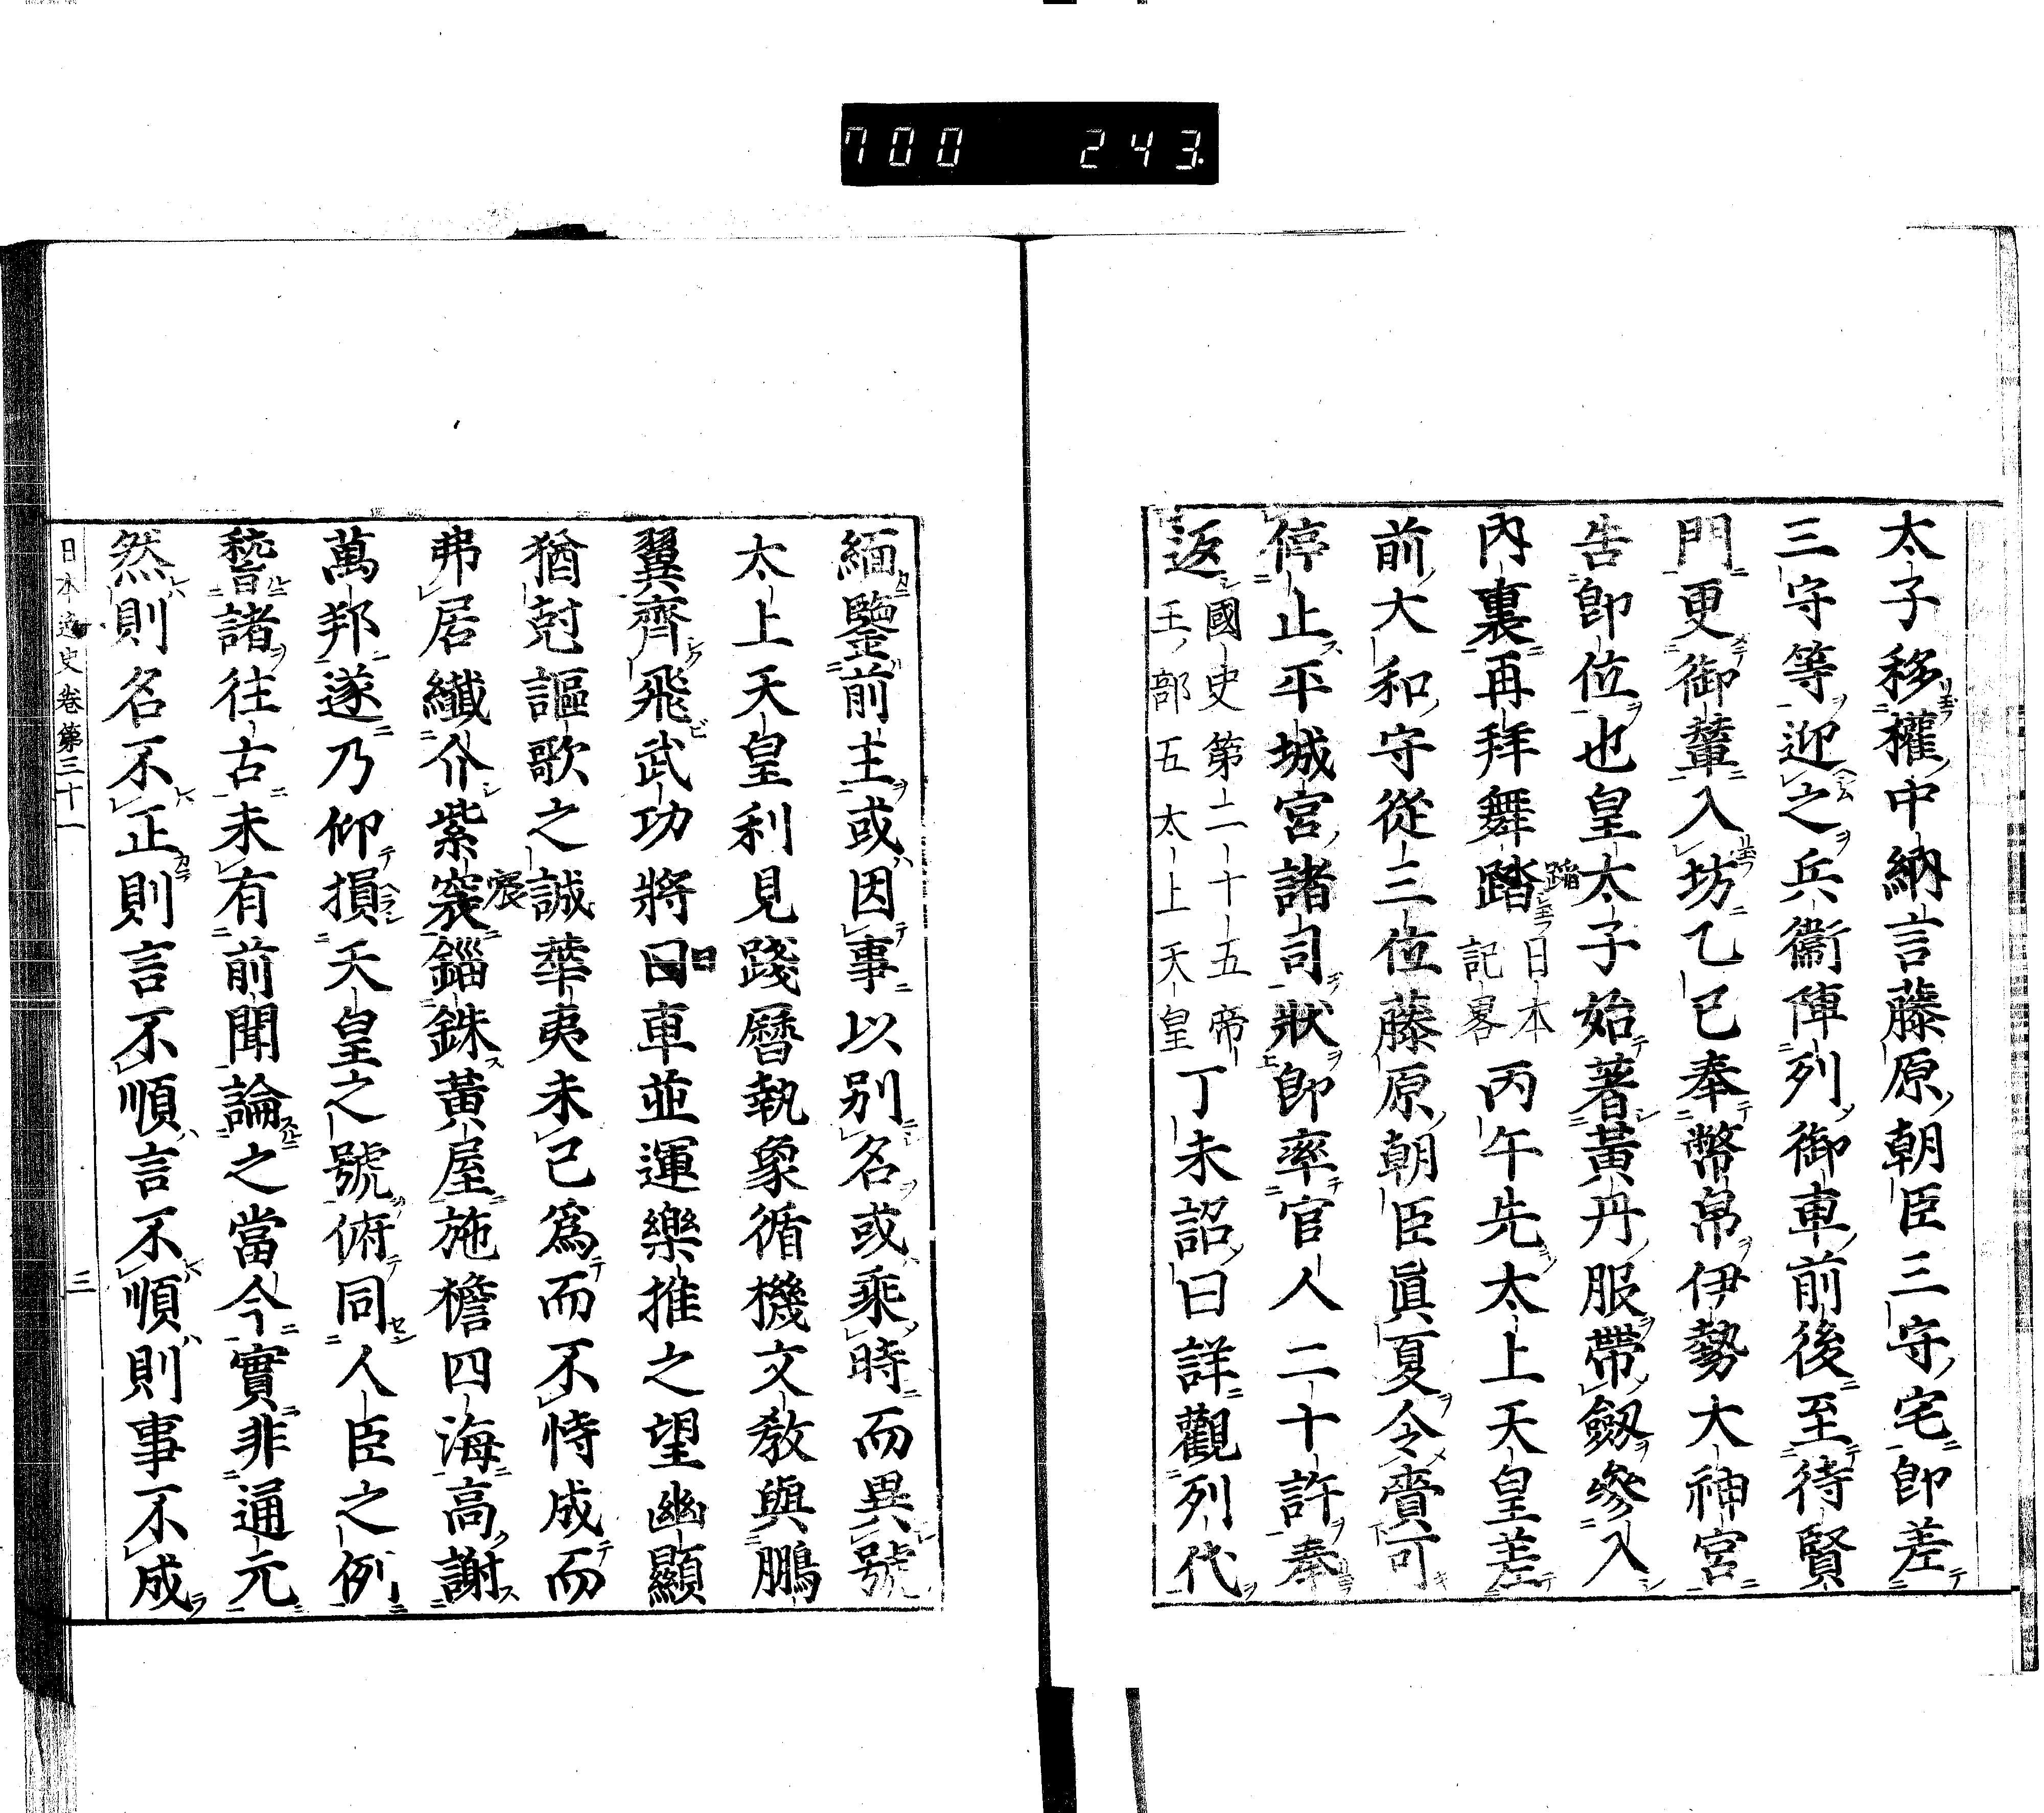 700 243
太子移權中納言藤原朝臣三守宅卽差
三守等迎之兵衞陣列御車前後至待賢
門更御輦入坊乙巳奉幣帛伊勢大神宮
告卽位也皇太子始著黃丹服帶劔參入
內裏再拜舞踏蹈日本記畧丙午先太上天皇差
前大和守從三位藤原朝臣眞夏令賷可
停止平城宮諸司狀卽率官人二十許奉
返國史第二十五帝王部五太上天皇丁未詔曰詳觀列代
緬鑒前主或因事以別名或乘時而異號
太上天皇利見踐曆執象循機文敎與鵬
翼齊飛武功將日車並運樂推之望幽顯
猶尅謳歌之誠華夷未已爲而不恃成而
弗居纖介紫宸錙銖黃屋施檐四海高謝
萬邦遂乃仰損天皇之號俯同人臣之例
稽諸往古未有前聞論之當今實非通元
然則名不正則言不順言不順則事不成
日本逸史卷第三十一 三